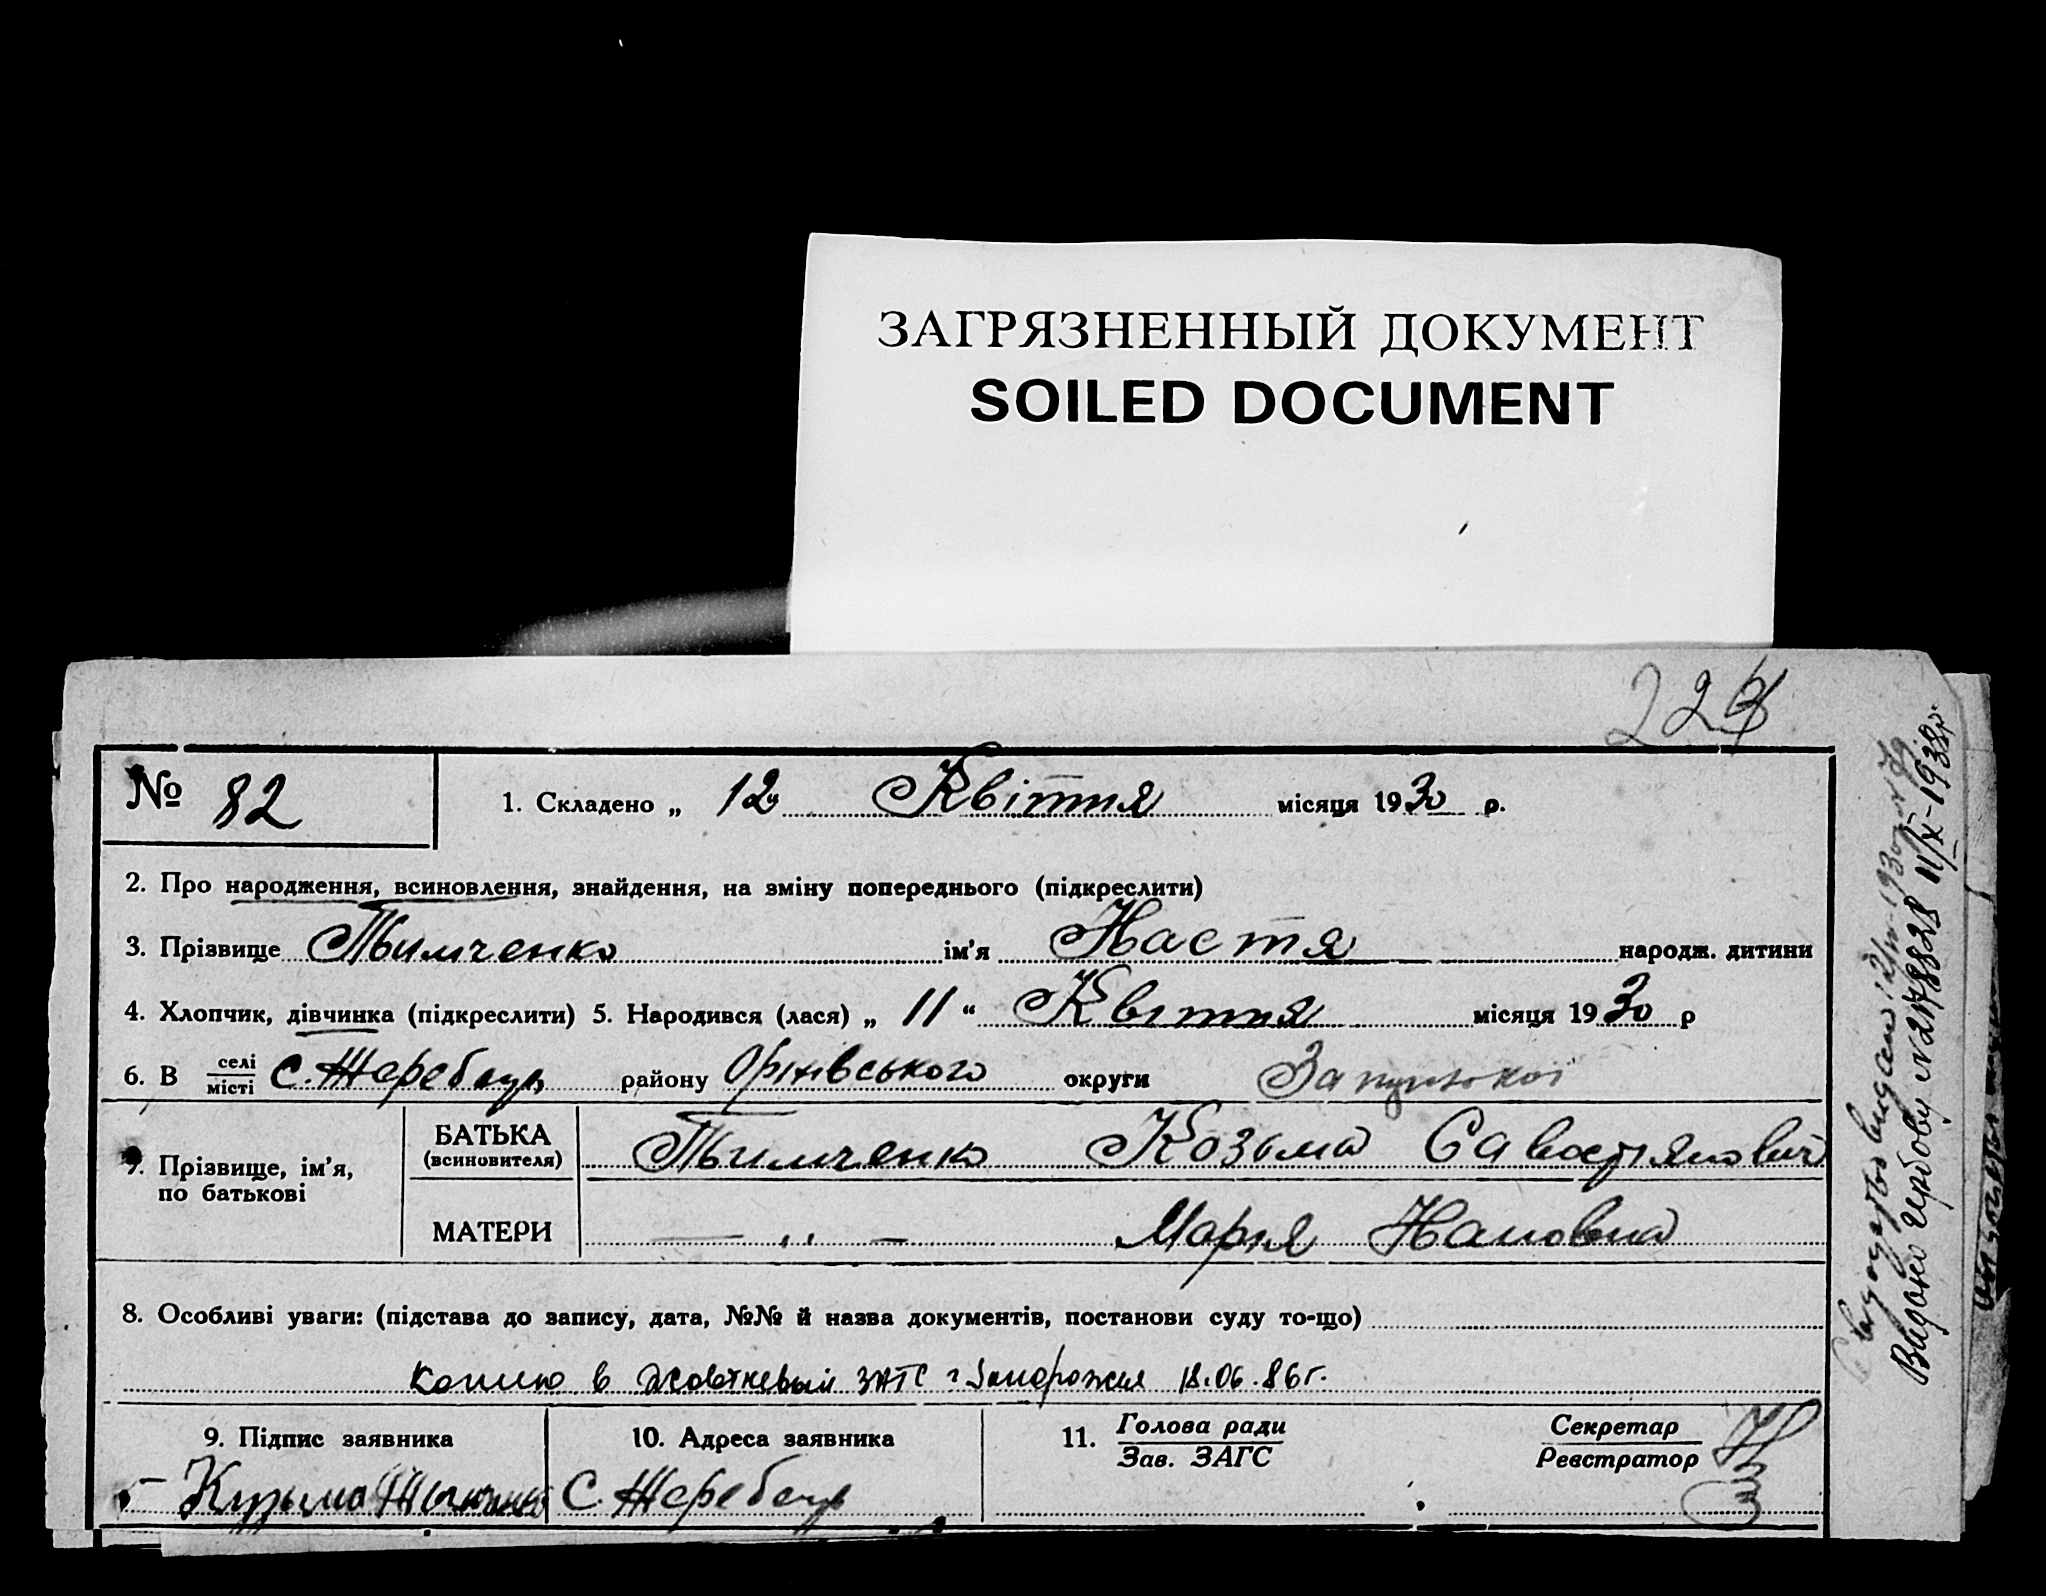 ЗАГРЯЗНЕННЫЙ ДОКУМЕНТ
SOILED DOCUMENT
№ 82
1. Складено „ 12 Квітня місяця 1930 р.
2. Про народження, всиновлення, знайдення, на зміну попереднього (підкреслити)
3. Прізвище Тьимченко ім'я Настя народж. дитини
4. Хлопчик, дівчинка (підкреслити) 5. Народився (лася) „ 11 “ Квітня місяця 1930 р
6. В селі місті С. Жеребець району Оріхівського округи
7. Прізвище, ім'я, по батькові
БАТЬКА (всиновителя) Тьимченко Козьма Савостянович
МАТЕРИ — „ — Марія
8. Особливі уваги: (підстава до запису, дата, №№ й назва документів, постанови суду то-що)
копию в Жовтневый ЗАГС г Запорожья 18.06.86г.
9. Підпис заявника
Кузьма
10. Адреса заявника
С. Жеребець
11. Голова ради
Зав. ЗАГС
Секретар
Реєстратор
Видано Гербову № 2178828 11/IX-1938р.